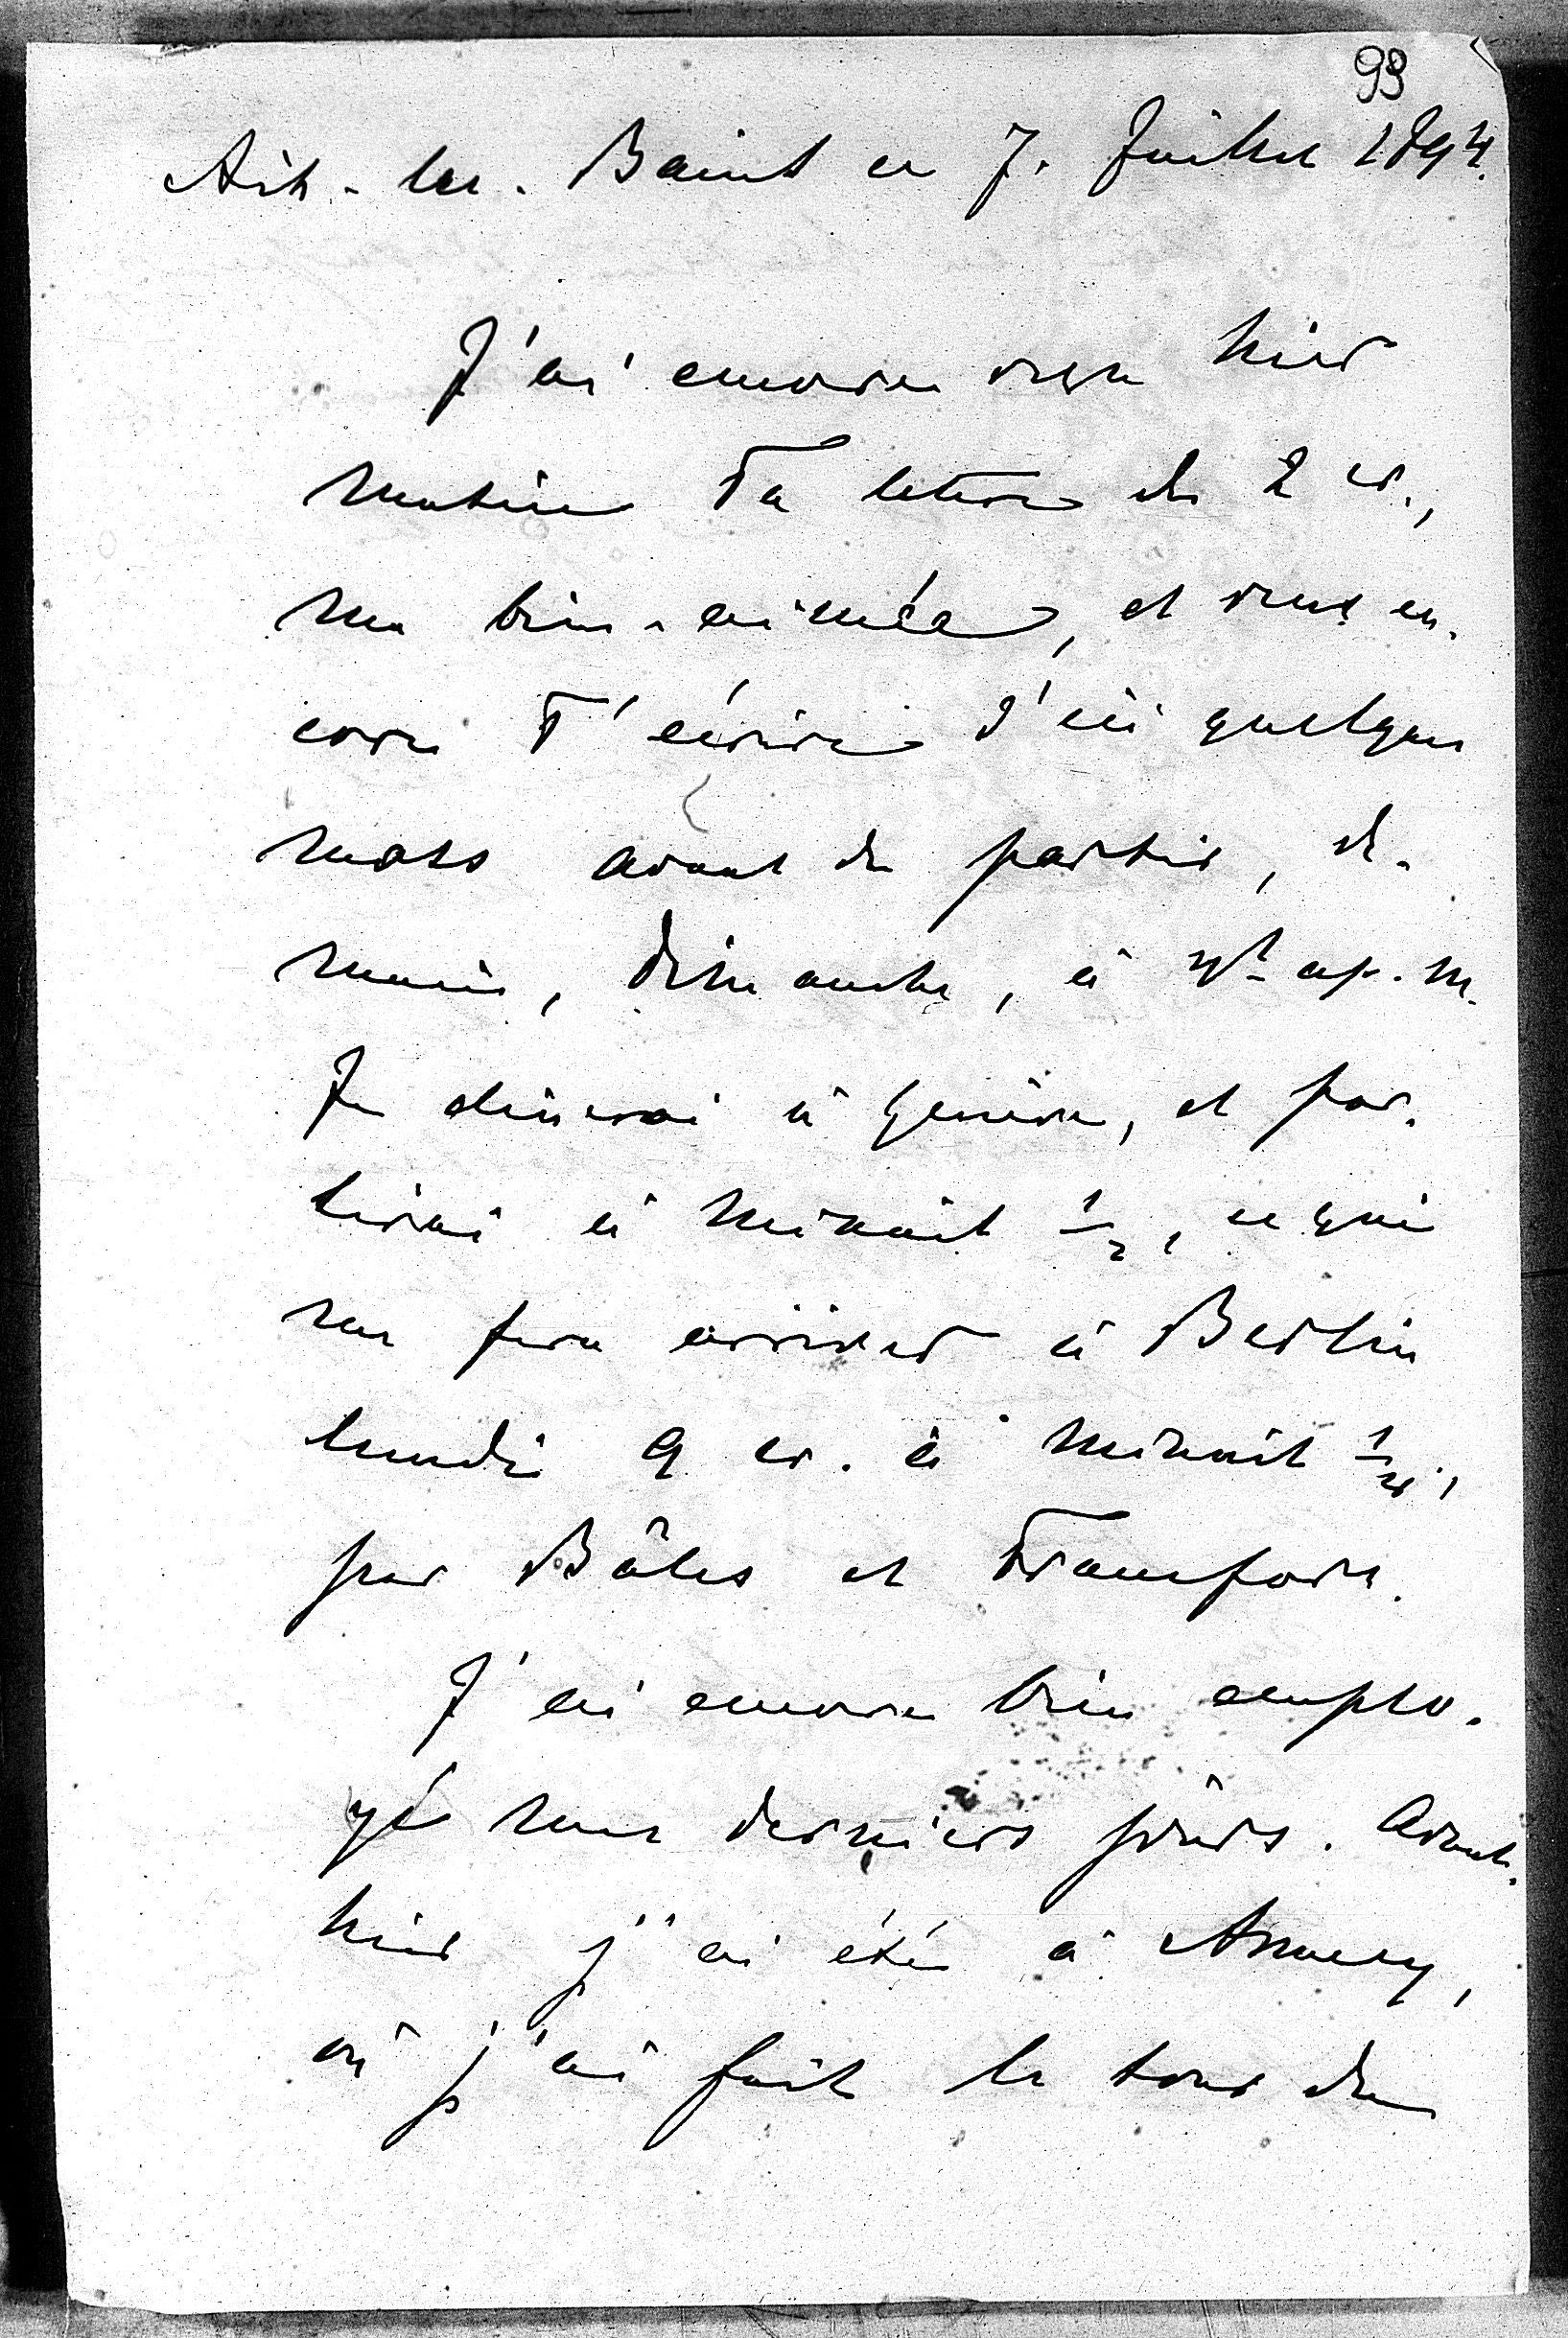 93
Aix-les-Bains ce 7. Juillet 1894.
J'ai encore reçu hier
matin Ta lettre du 2 cr.,
ma bien-aimée, et veux en-
core T'écrire d'ici quelques
mots avant de partir, de-
main, dimanche, à 4h ap. m.
Je dînerai à Genève, et par-
tirai à minuit 1/2, ce qui
me fera arriver à Berlin
lundi 9 cr. à minuit 1/4,
par Bâles et Francfort.
J'ai encore bien emplo-
yé mes derniers jours. Avant-
hier j'ai été à Annecy,
où j'ai fait le tour du